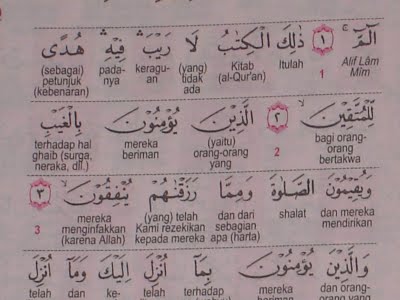 الٓمٓ ۚ ١ ذٰلِكَ الْكِتٰبُ لَا رَيْبَ ۛ فِيْهِ ۛ هُدًى
Alif Lâm Mîm 1 Itulah Kitab (al-Qur'an) (yang) tidak ada keragu-an pada-nya (sebagai) petunjuk (kebenaran)
لِّلْمُتَّقِيْنَ ۙ ٢ الَّذِيْنَ يُؤْمِنُوْنَ بِالْغَيْبِ
bagi orang-orang bertakwa 2 (yaitu) orang-orang yang mereka beriman terhadap hal ghaib (surga, neraka, dll.)
وَيُقِيْمُوْنَ الصَّلٰوةَ وَمِمَّا رَزَقْنٰهُمْ يُنْفِقُوْنَ ۙ ٣
dan mereka mendirikan shalat dan dari sebagian apa (harta) (yang) telah Kami rezekikan kepada mereka mereka menginfakkan (karena Allah) 3
وَالَّذِيْنَ يُؤْمِنُوْنَ بِمَآ اُنْزِلَ اِلَيْكَ وَمَآ اُنْزِلَ
dan orang-orang yang mereka beriman terhadap telah ke- dan telah